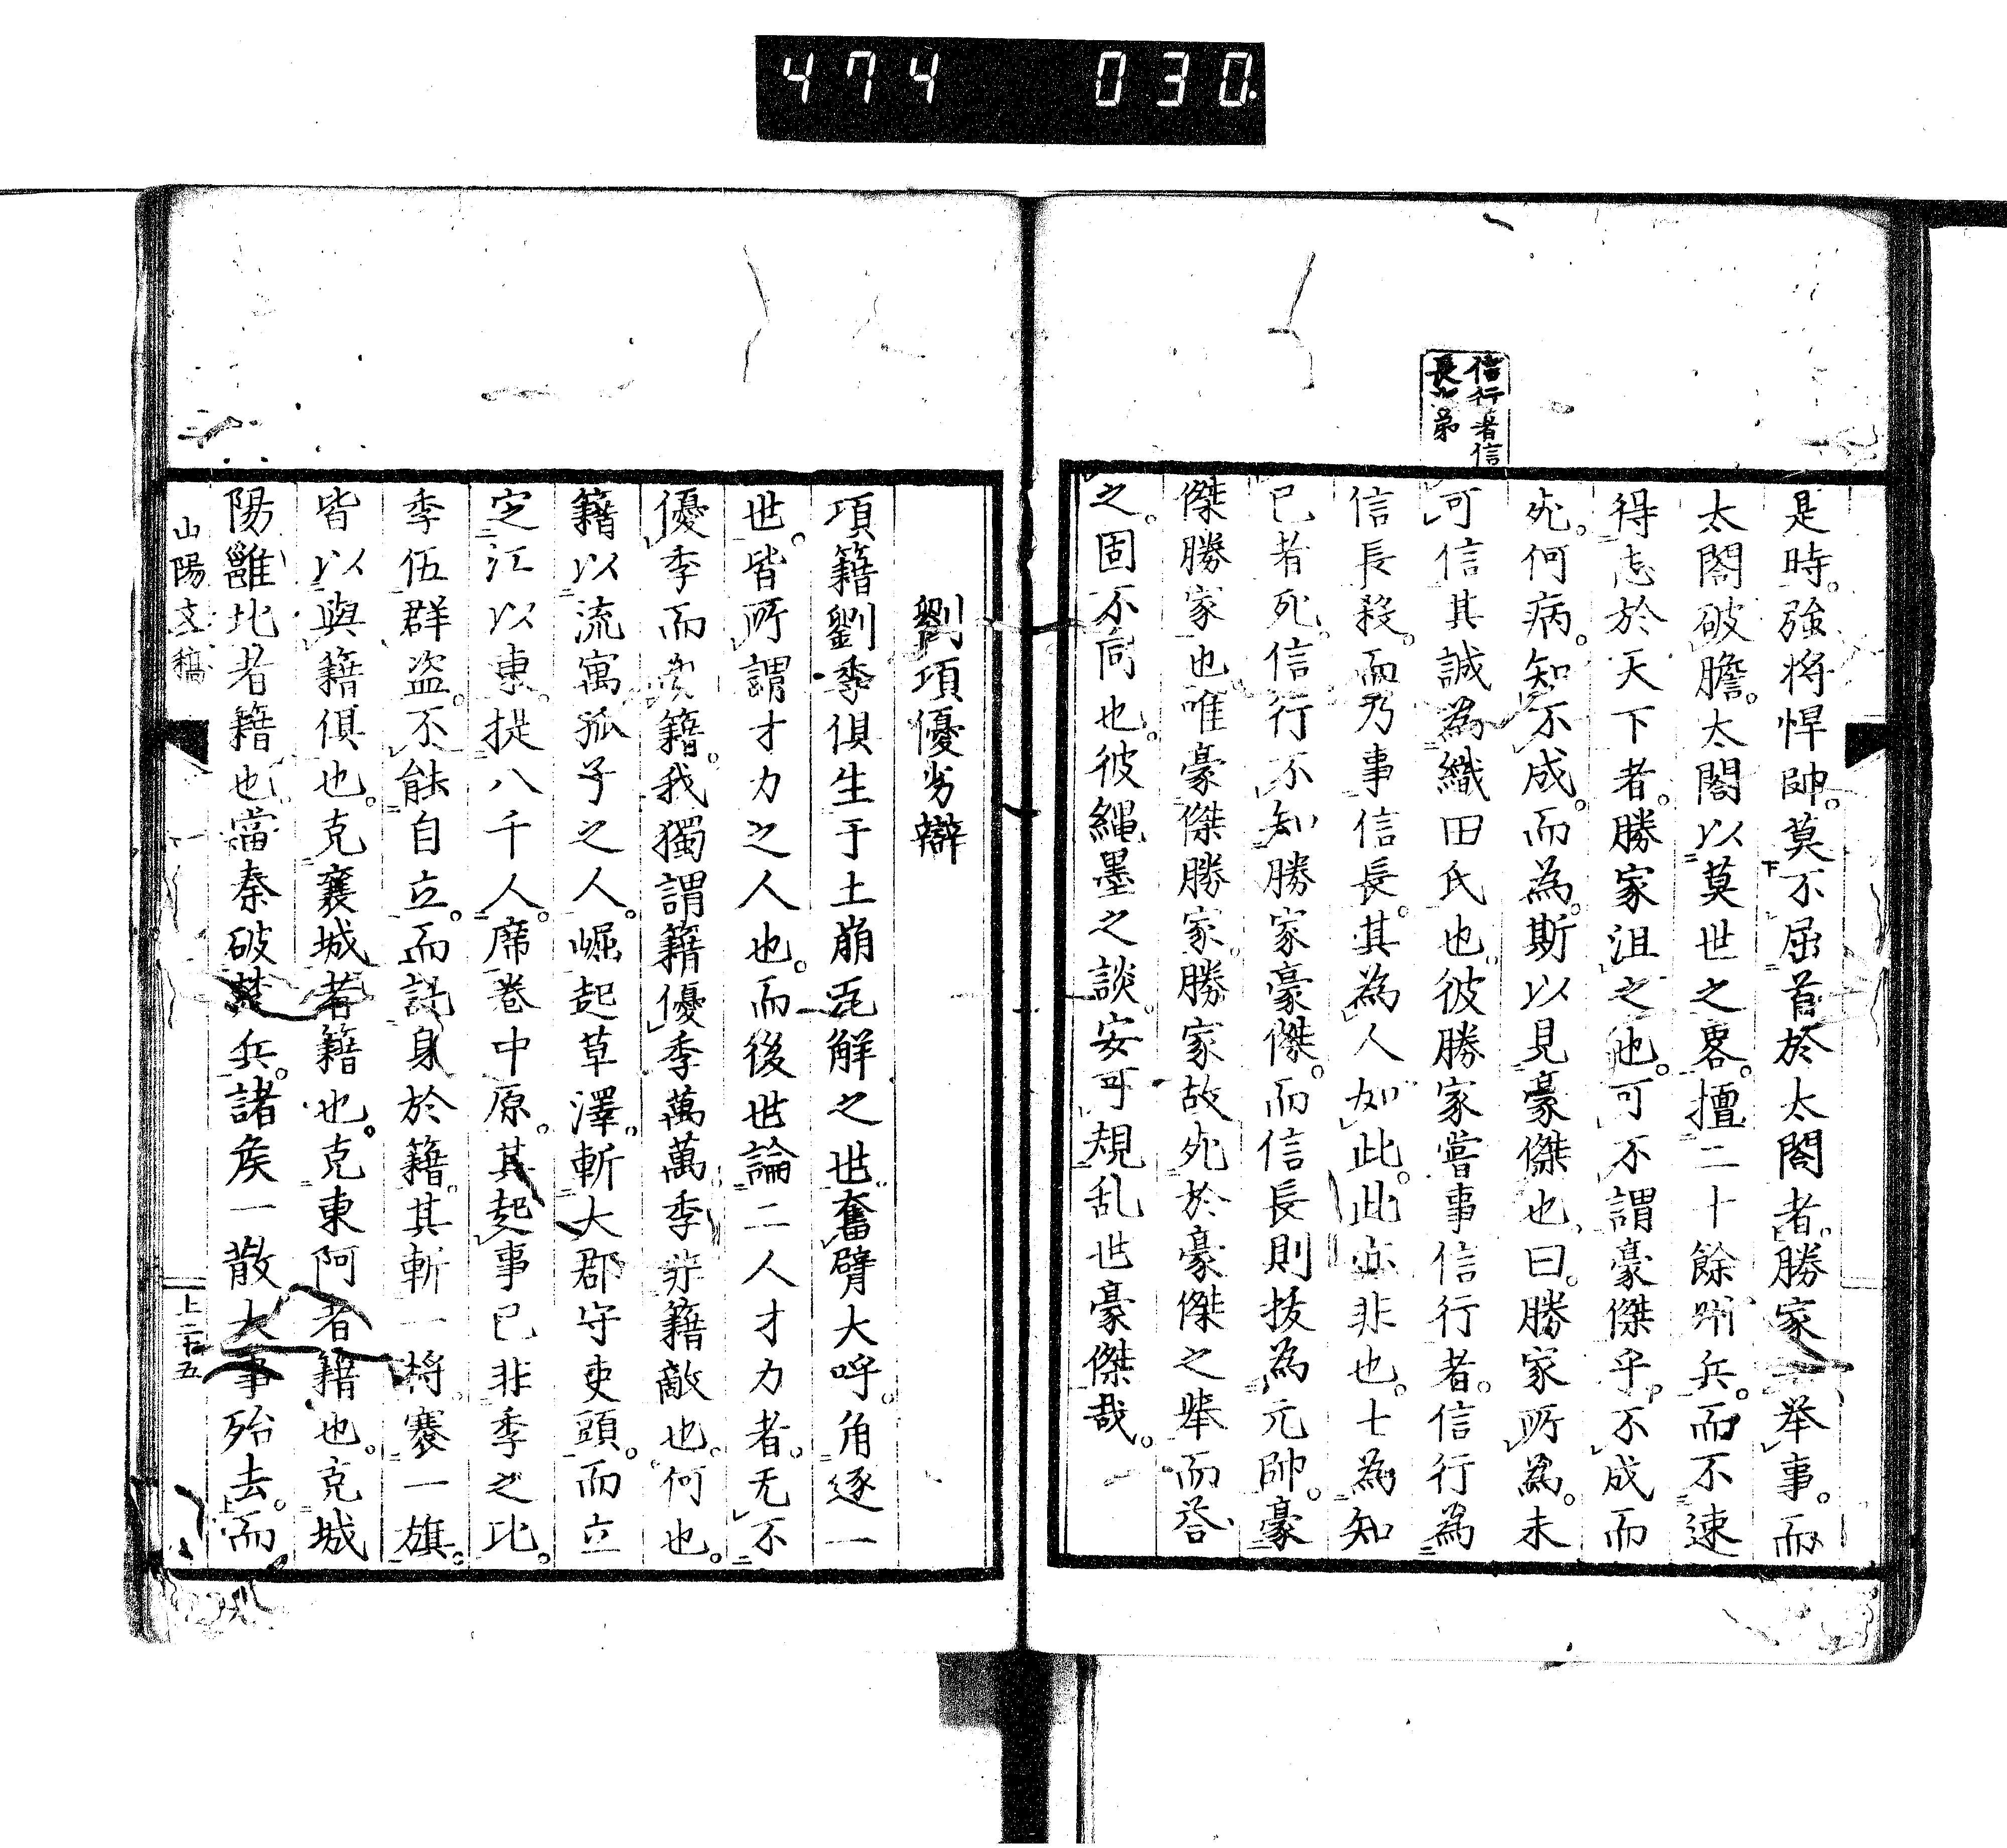 474 030.
信行者信
長ノ弟
是時。強将悍帥。莫不屈首於太閤者。勝家一举事。而
太閤破膽。太閤以莫世之畧。擅二十餘州兵。而不速
得志於天下者。勝家沮之也。可不謂豪傑乎。不成而
死。何病。知不成。而為。斯以見豪傑也。曰。勝家所為。未
可信其誠為織田氏也。彼勝家嘗事信行者。信行為
信長殺。而乃事信長。其為人如此。此亦非也。士為知
已者死。信行不知勝家豪傑。而信長則抜為元帥。豪
傑勝家也。唯豪傑勝家。勝家故死於豪傑之举而荅
之。固不同也。彼繩墨之談。安可規乱世豪傑哉。
劉項優劣辯
項籍劉季俱生于土崩瓦解之世。奮臂大呼。角逐一
世。皆所謂才力之人也。而後世論二人才力者。无不
優季而劣籍。我獨謂籍優季萬萬。季非籍敵也。何也。
籍以流寓孤子之人。崛起草澤。斬大郡守吏頭。而立
定江以東。提八千人。席巻中原。其起事已非季之比。
季伍群盗。不能自立。而託身於籍。其斬一将。搴一旗。
皆以與籍俱也。克襄城者籍也。克東阿者籍也。克城
陽雝北者籍也。當秦破楚兵。諸矦一散大事殆去。而
山陽文稿
上二十五